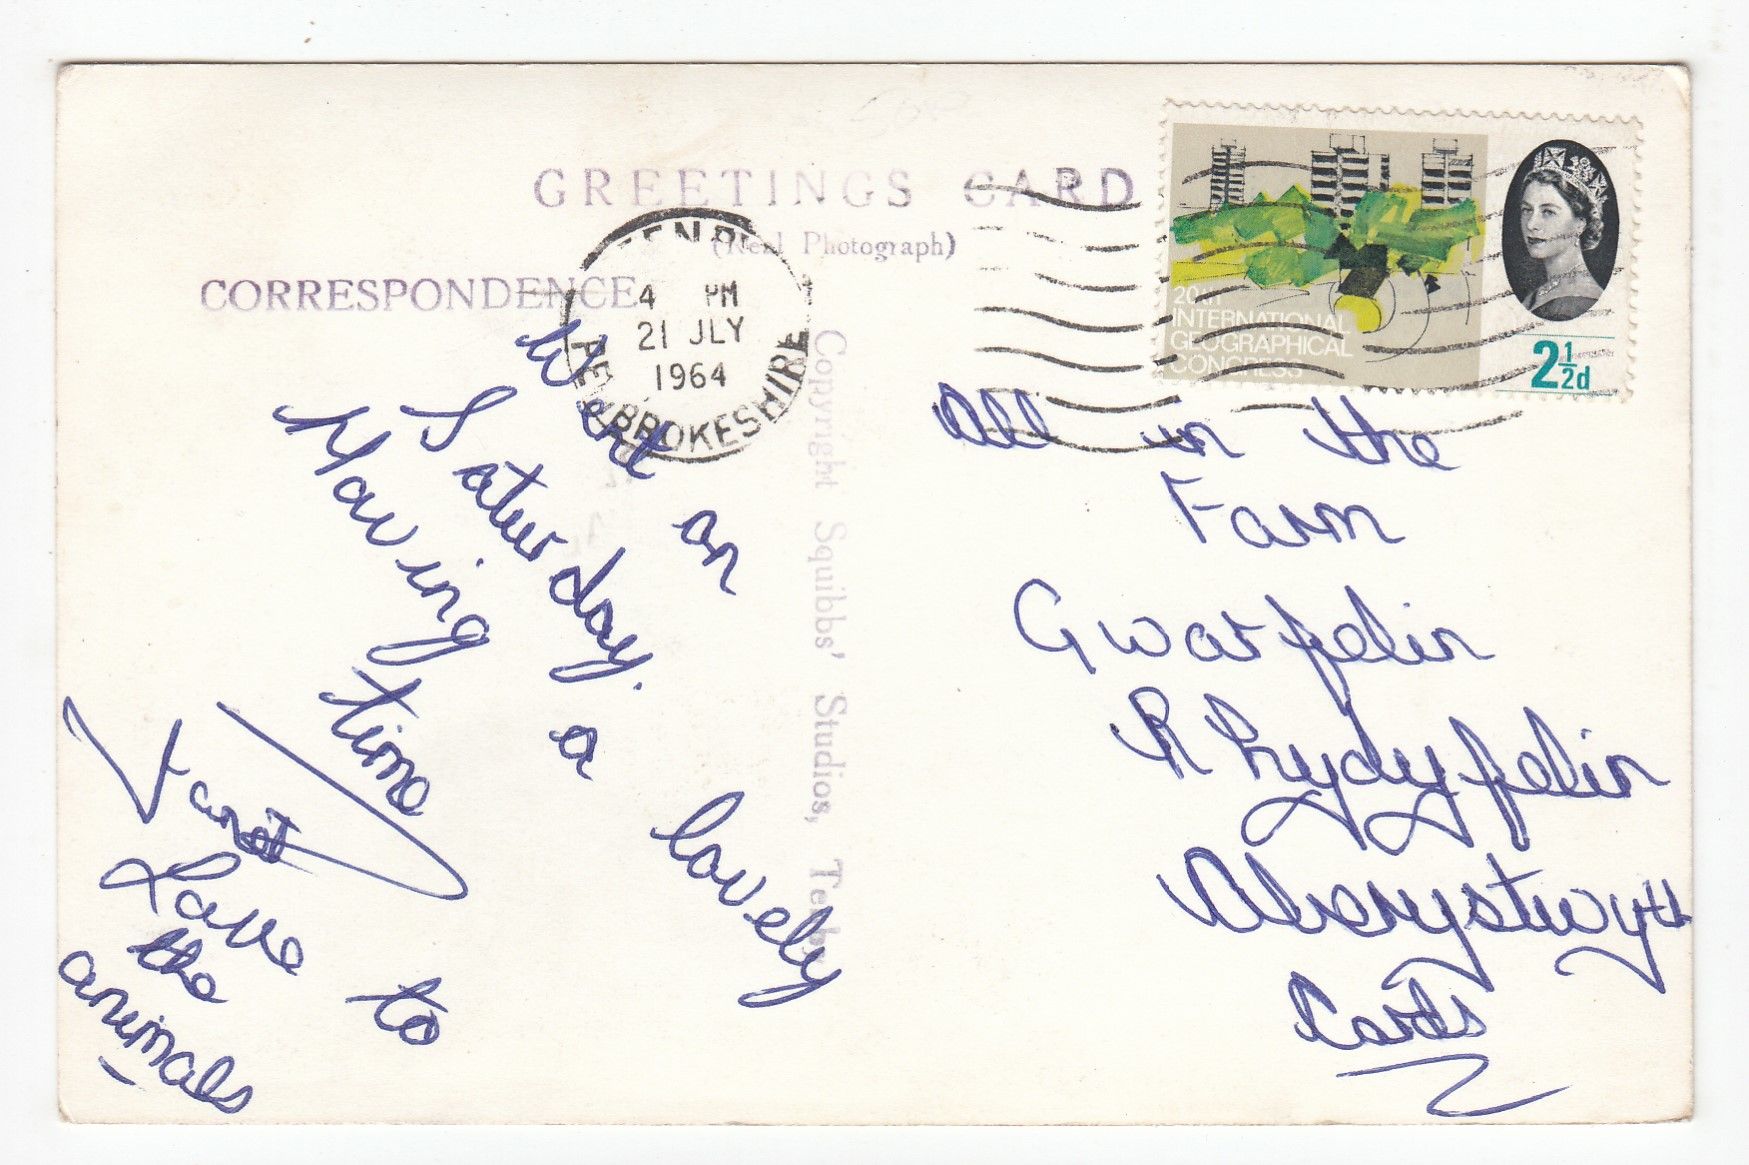 GREETINGS CARD
(Real Photograph)
CORRESPONDENCE
4 PM
21 JLY
1964
PEMBROKESHIRE
20th
INTERNATIONAL
GEOGRAPHICAL
CONGRESS
2½d
Copyright Squibbs' Studios, Tenby
Went on
Saturday.
Having a lovely
time
Janet
Love to
the
animals
All in the
Farm
Gwarfelin
Rhydyfelin
Aberystwyth
Cards